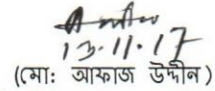 13.11.17
(মো: আফাজ উদ্দীন)